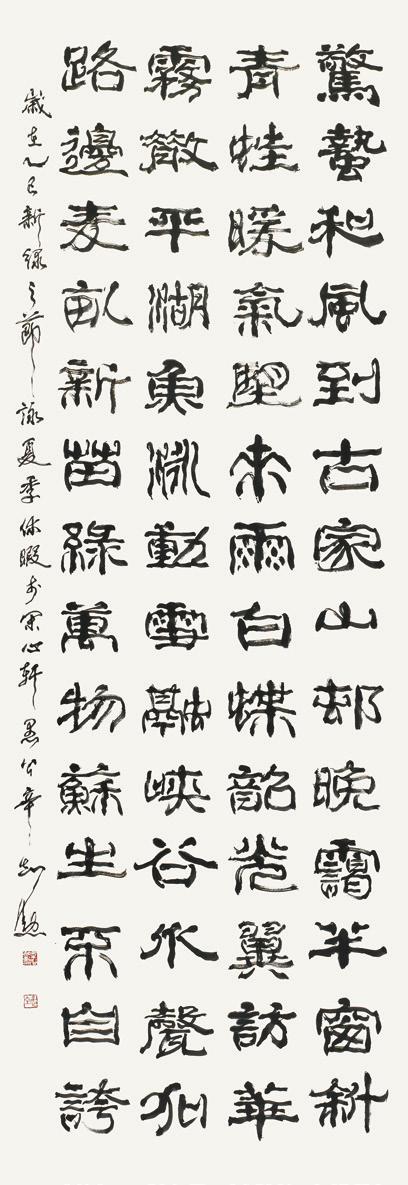 驚蟄和風到古家山邨晚靄半窗斜
青蛙暖氣望来雨白蝶韶光翼訪華
霧散平湖魚泳動雪融峽谷水聲加
路邊麦畝新苗綠萬物蘇生不自誇
歲在乙巳新綠之節詠夏季休暇於心軒愚公辛